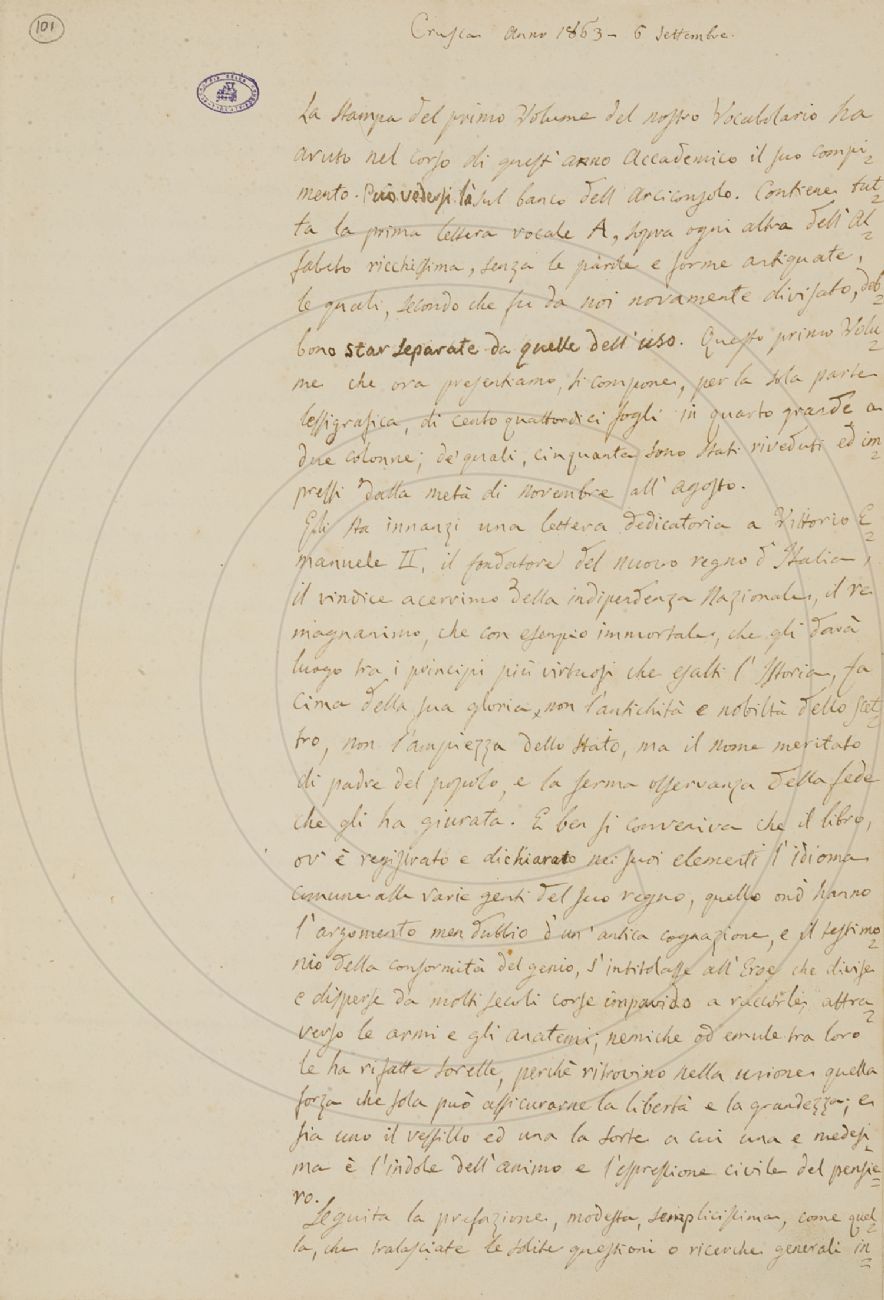 101
Crusca Anno 1863 - 6 Settembre.
La stampa del primo Volume del nostro Vocabolario ha
avuto nel corso di quest'anno Accademico il suo compi=
mento. Può vedersi là sul banco dell'Arciconsolo. Contiene tut=
ta la prima lettera vocale A, sopra ogni altra dell'Al=
fabeto ricchissima, senza le parole e forme antiquate,
le quali, secondo che fu da noi novamente divisato, deb=
bono star separate da quelle dell'uso. Questo primo Volu=
me che ora presentiamo, si compone, per la sola parte
lessigrafica, di cento quattordici fogli in quarto grande a
due colonne; de' quali, cinquanta sono stati riveduti ed im=
pressi dalla metà di novembre all'agosto.
Gli sta innanzi una lettera dedicatoria a Vittorio E=
manuele II, il fondatore del nuovo regno d'Italia,
il vindice acerrimo della indipendenza Nazionale, il re
magnanimo, che con esempio immortale, che gli darà
luogo tra i principi più virtuosi che esalti l'Istoria, fa
cima della sua gloria, non l'antichità e nobiltà dello scet=
tro, non l'ampiezza dello Stato, ma il nome meritato
di padre del popolo, e la ferma osservanza della fede
che gli ha giurata. E ben si conveniva che il libro,
ov'è registrato e dichiarato nei suoi elementi l'idioma
comune alle varie genti del suo regno, quello ond'hanno
l'argomento men dubbio d'un'antica cognazione, e il testimo=
nio della conformità del genio, s'intitolasse all'Eroe che divise
e disperse da molti secoli corse impavido a raccorle, attra=
verso le armi e gli anatemi; nemiche od emule tra loro
le ha rifatte sorelle, perchè ritrovino nella unione quella
forza che sola può assicurarne la libertà e la grandezza; e
sia uno il vessillo ed una la sorte a cui una e medesi=
ma è l'indole dell'animo e l'espressione civile del pensie=
ro.
Seguita la prefazione, modesta, semplicissima, come quel=
la, che tralasciate le solite questioni o ricerche generali in=